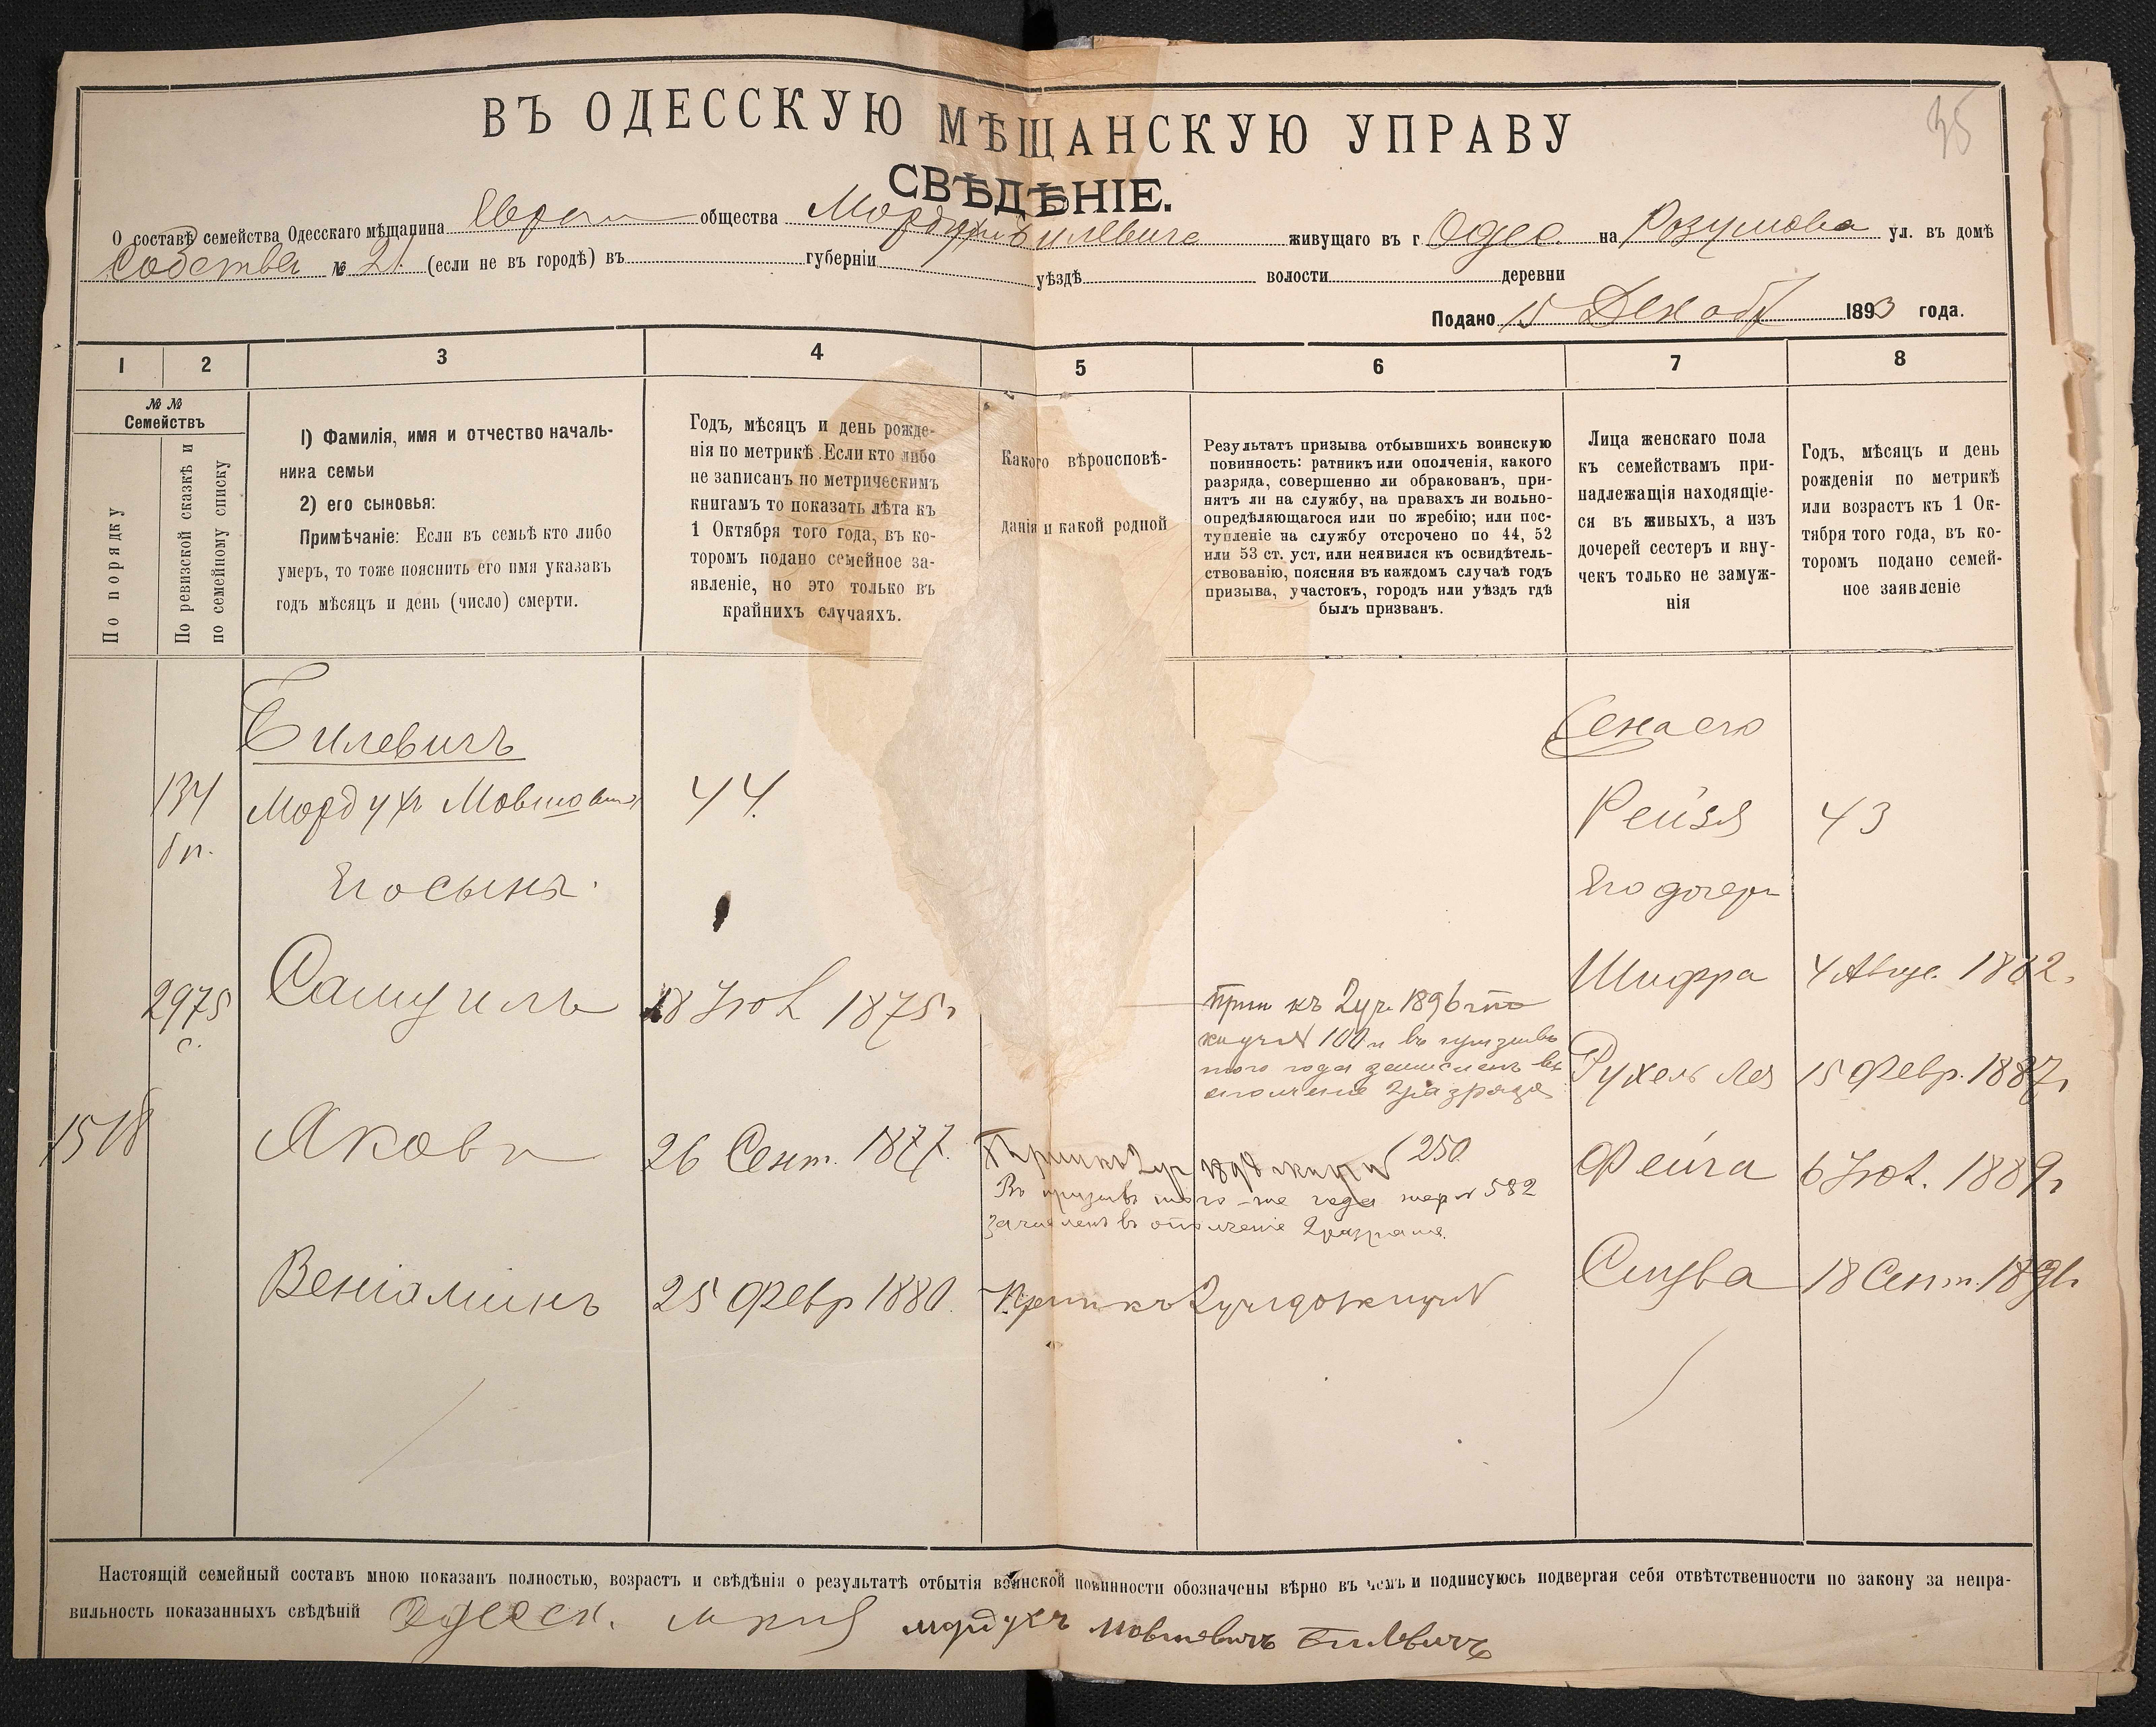 35
ВЪ ОДЕССКУЮ МѢЩАНСКУЮ УПРАВУ
СВѢДѢНІЕ.
О составѣ семейства Одесскаго мѣщанина Евреи общества Мордухъ Билевичъ живущаго въ г. Одес. на Розумова ул. въ домѣ
Собствен № 21 (если не въ городѣ) въ губерніи уѣздѣ волости деревни
Подано 15 Декабр 1893 года.
1 2 3 4 5 6 7 8
№ №
Семействъ
По порядку
По ревизской сказкѣ и
по семейному списку
1) Фамилія, имя и отчество началь-
ника семьи
2) его сыновья:
Примѣчаніе: Если въ семьѣ кто либо
умеръ, то тоже пояснить его имя указавъ
годъ мѣсяцъ и день (число) смерти.
Годъ, мѣсяцъ и день рожде-
нія по метрикѣ. Если кто либо
не записанъ по метрическимъ
книгамъ то показать лѣта къ
1 Октября того года, въ ко-
торомъ подано семейное за-
явленіе, но это только въ
крайнихъ случаяхъ.
Какого вѣроисповѣ-
данія и какой родной
Результатъ призыва отбывшихъ воинскую
повинность: ратникъ или ополченія, какого
разряда, совершенно ли обракованъ, при-
нятъ ли на службу, на правахъ ли вольно-
опредѣляющагося или по жребію; или пос-
тупленіе на службу отсрочено по 44, 52
или 53 ст. уст, или неявился къ освидѣтель-
ствованію, поясняя въ каждомъ случаѣ годъ
призыва, участокъ, городъ или уѣздъ гдѣ
былъ призванъ.
Лица женскаго пола
къ семействамъ при-
надлежащія находящіе-
ся въ живыхъ, а изъ
дочерей сестеръ и вну-
чекъ только не замуж-
нія
Годъ, мѣсяцъ и день
рожденія по метрикѣ
или возрастъ къ 1 Ок-
тября того года, въ ко-
торомъ подано семей-
ное заявленіе
Билевичъ
Жена его
134 Мордухъ Мовшовичъ 44. Рейзя 43
Его сыны. Его дочери
2975 Самуиль 18 Іюл 1875 г Шифра 4 Авгус. 1882.
с.
Прип къ 2 уч. 1896 г по
100 и въ призывъ
того года зачисленъ въ
ополчение 2 разряда
Рухель Лея 15 Февр. 1887 г
1518 Яковъ 26 Сент. 1877. 250 Фейга 6 Іюл. 1889 г
Въ призывъ того-же года жер № 582
зачисленъ въ ополчение 2 разряда.
Веніаминъ 25 Февр 1880. Прип къ 2 уч Слува 18 Сент. 1891.
Настоящій семейный составъ мною показанъ полностью, возрастъ и свѣдѣнія о результатѣ отбытія воинской повинности обозначены вѣрно въ чемъ и подписуюсь подвергая себя отвѣтственности по закону за непра-
вильность показанныхъ свѣдѣній Одесск. мордухъ мовшевичъ Билевичъ